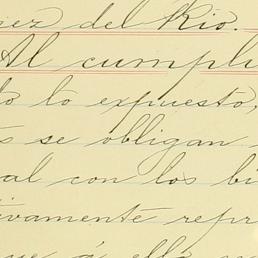 ez del Rio.
Al cumpli
to lo expuesto,
s se obligan
al con los bi
tivamente repr
que á ella